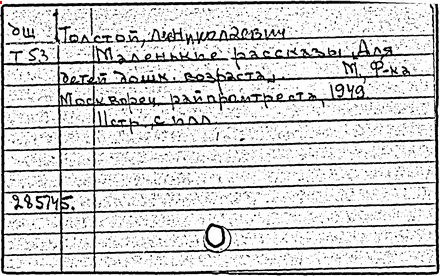 дш Толстой, Л.Николаевич
Т53 Маленькие рассказы. Для
детей дошк. возраста. М, Ф-ка
Москворец. райпромтреста, 1949
11стр. с илл
285145.